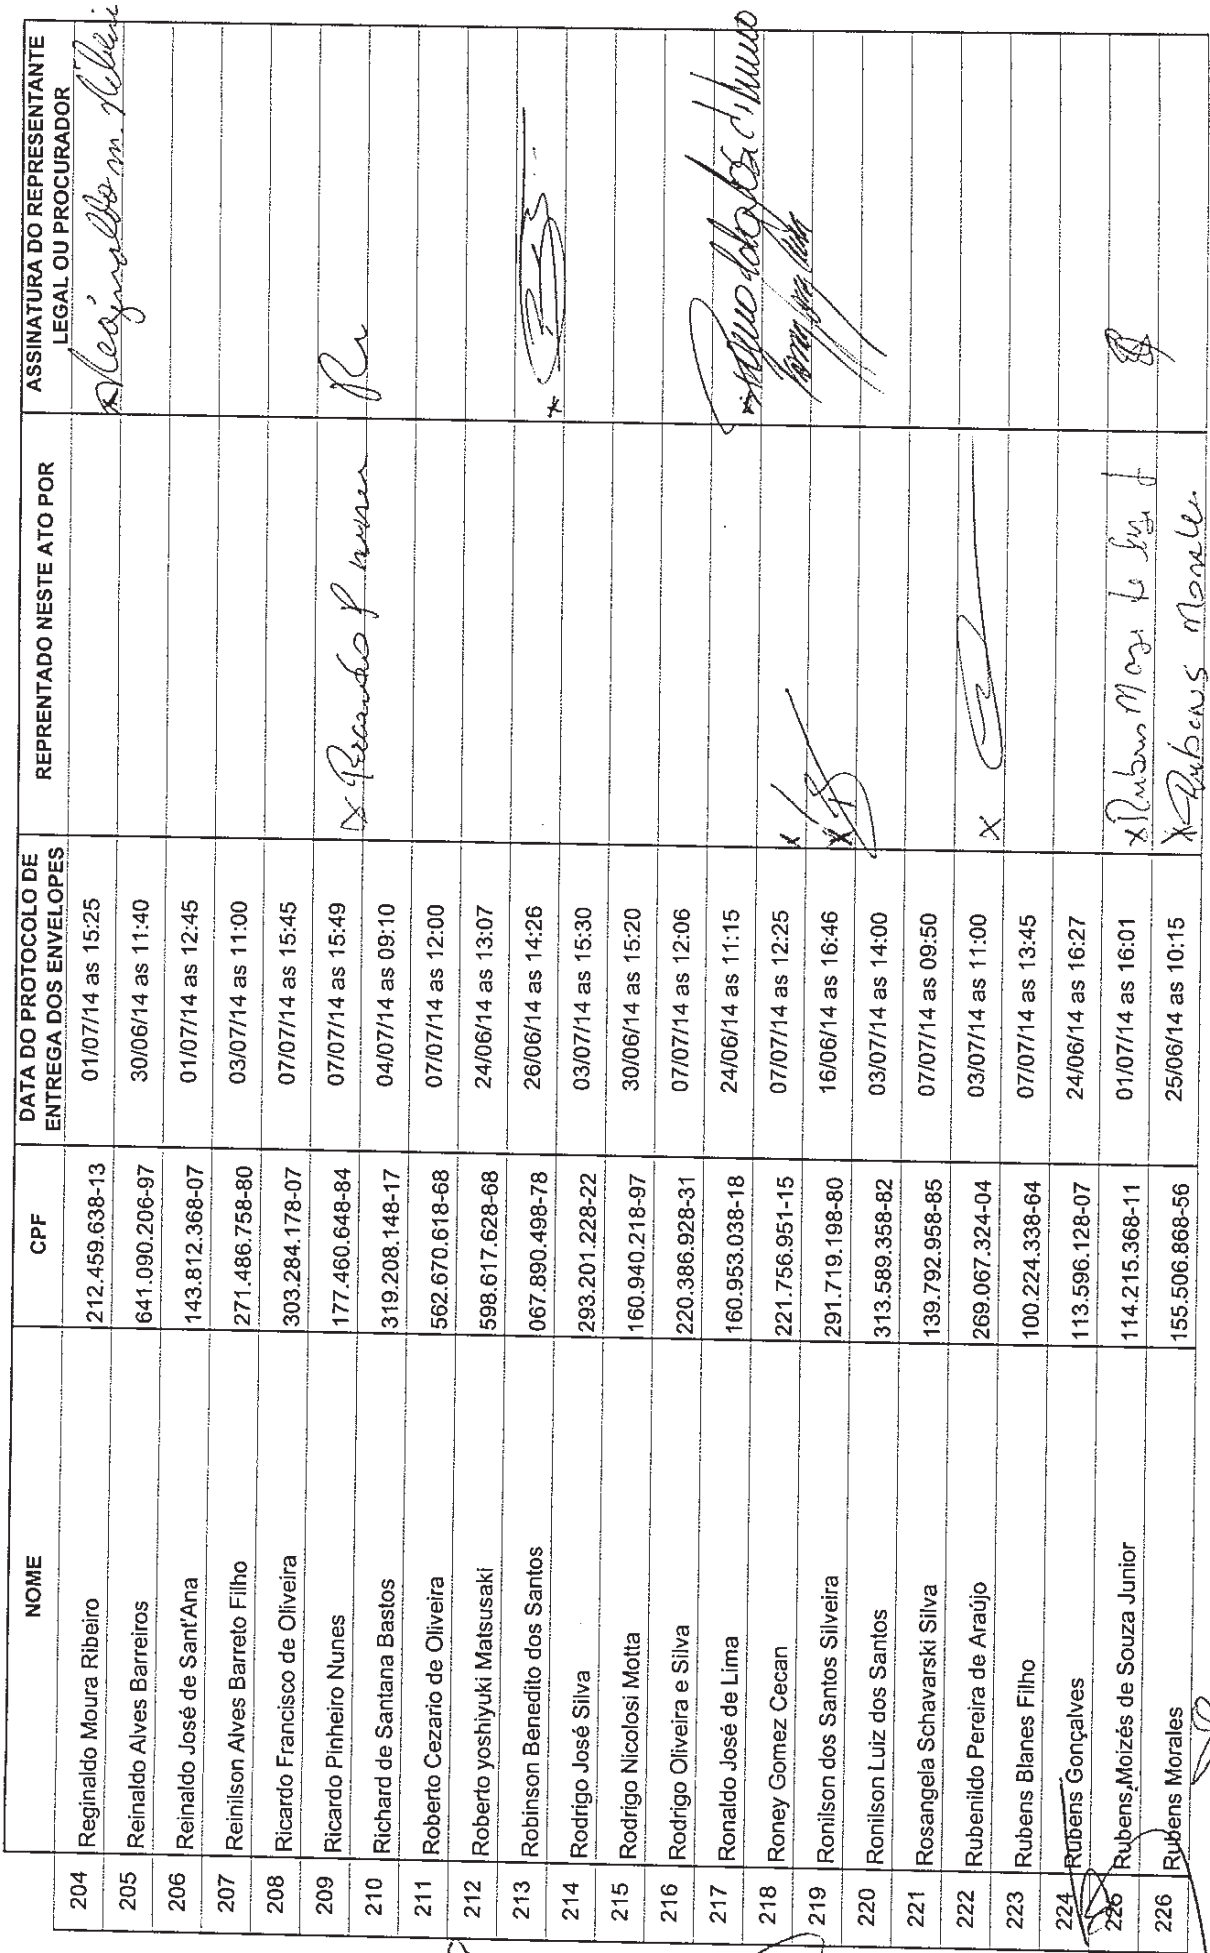 NOME CPF DATA DO PROTOCOLO DE ENTREGA DOS ENVELOPES REPRENTADO NESTE ATO POR ASSINATURA DO REPRESENTANTE LEGAL OU PROCURADOR
204 Reginaldo Moura Ribeiro 212.459.638-13 01/07/14 as 15:25 x Reginaldo m. Ribeiro
205 Reinaldo Alves Barreiros 641.090.206-97 30/06/14 as 11:40
206 Reinaldo José de Sant'Ana 143.812.368-07 01/07/14 as 12:45
207 Reinilson Alves Barreto Filho 271.486.758-80 03/07/14 as 11:00
208 Ricardo Francisco de Oliveira 303.284.178-07 07/07/14 as 15:45
209 Ricardo Pinheiro Nunes 177.460.648-84 07/07/14 as 15:49 x Ricardo P nunes
210 Richard de Santana Bastos 319.208.148-17 04/07/14 as 09:10
211 Roberto Cezario de Oliveira 562.670.618-68 07/07/14 as 12:00
212 Roberto yoshiyuki Matsusaki 598.617.628-68 24/06/14 as 13:07
213 Robinson Benedito dos Santos 067.890.498-78 26/06/14 as 14:26 x
214 Rodrigo José Silva 293.201.228-22 03/07/14 as 15:30
215 Rodrigo Nicolosi Motta 160.940.218-97 30/06/14 as 15:20
216 Rodrigo Oliveira e Silva 220.386.928-31 07/07/14 as 12:06
217 Ronaldo José de Lima 160.953.038-18 24/06/14 as 11:15 x
218 Roney Gomez Cecan 221.756.951-15 07/07/14 as 12:25 x
219 Ronilson dos Santos Silveira 291.719.198-80 16/06/14 as 16:46 x
220 Ronilson Luiz dos Santos 313.589.358-82 03/07/14 as 14:00
221 Rosangela Schavarski Silva 139.792.958-85 07/07/14 as 09:50
222 Rubenildo Pereira de Araújo 269.067.324-04 03/07/14 as 11:00 x
223 Rubens Blanes Filho 100.224.338-64 07/07/14 as 13:45
224 Rubens Gonçalves 113.596.128-07 24/06/14 as 16:27
225 Rubens Moizés de Souza Junior 114.215.368-11 01/07/14 as 16:01 x Rubens
226 Rubens Morales 155.506.868-56 25/06/14 as 10:15 x Rubens Morales